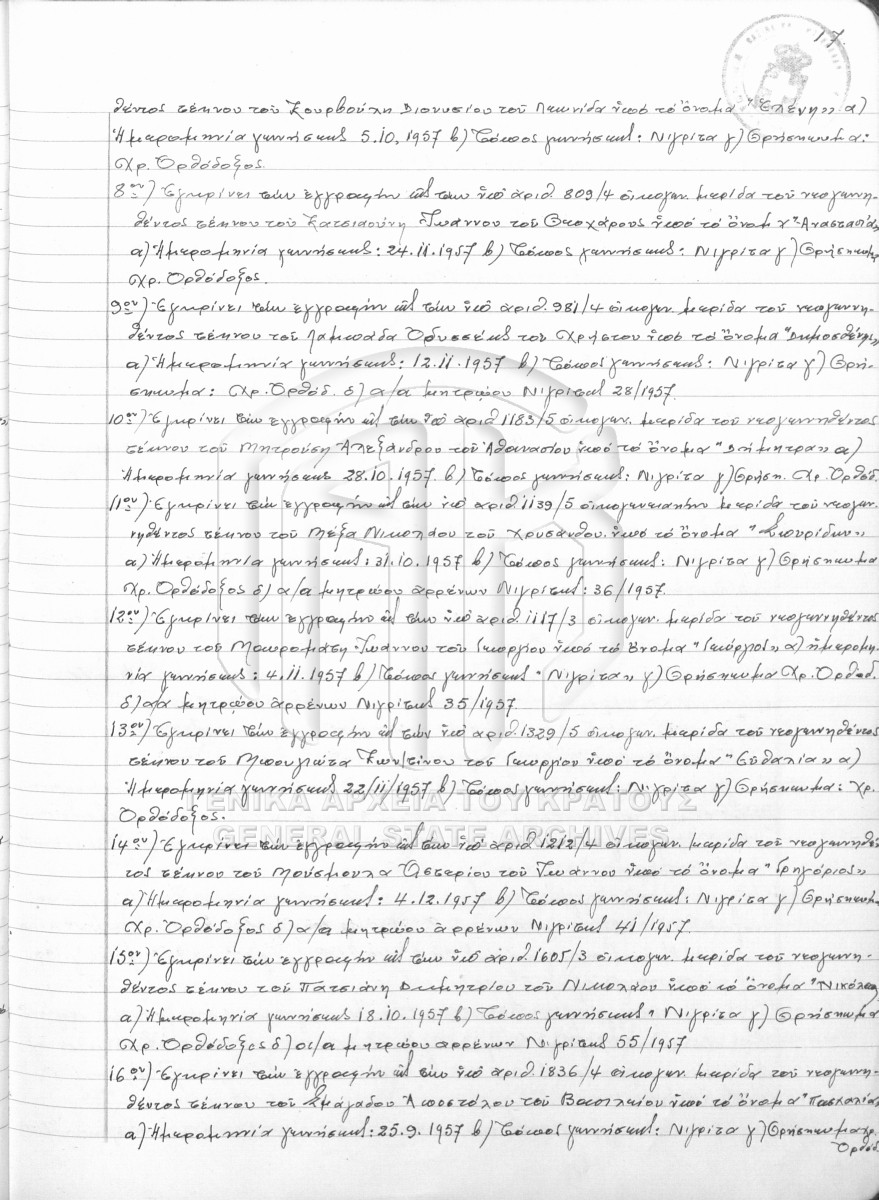 17.
θέντος τέκνου τοῦ Κουρβούλη Διονυσίου τοῦ Λεωνίδα ὑπό τό ὄνομα "Ἑλένη" α)
Ἡμερομηνία γεννήσεως 5.10.1957 β) Τόπος γεννήσεως: Νιγρίτα γ) Θρήσκευμα:
Χρ. Ὀρθόδοξος.
8ον) Ἐγκρίνει τήν ἐγγραφήν εἰς τήν ὑπό ἀριθ. 809/4 οἰκογεν. μερίδα τοῦ νεογεννη-
θέντος τέκνου τοῦ Κατσιαούνη Ἰωάννου τοῦ Θεοχάρους ὑπό τό ὄνομα "Ἀναστασία"
α) Ἡμερομηνία γεννήσεως: 24.11.1957 β) Τόπος γεννήσεως: Νιγρίτα γ) Θρήσκευμα
Χρ. Ὀρθόδοξος.
9ον) Ἐγκρίνει τήν ἐγγραφήν εἰς τήν ὑπό ἀριθ. 981/4 οἰκογεν. μερίδα τοῦ νεογεννη-
θέντος τέκνου τοῦ Λαμπάδα Ὀδυσσέως τοῦ Χρήστου ὑπό τό ὄνομα "Δημοσθένης"
α) Ἡμερομηνία γεννήσεως: 12.11.1957 β) Τόπος γεννήσεως: Νιγρίτα γ) Θρή-
σκευμα: Χρ. Ὀρθόδ. δ) α/α μητρώου Νιγρίτης 28/1957.
10ον) Ἐγκρίνει τήν ἐγγραφήν εἰς τήν ὑπό ἀριθ. 1183/5 οἰκογεν. μερίδα τοῦ νεογεννηθέντος
τέκνου τοῦ Μητρούση Ἀλεξάνδρου τοῦ Ἀθανασίου ὑπό τό ὄνομα "Δήμητρα" α)
Ἡμερομηνία γεννήσεως 28.10.1957. β) Τόπος γεννήσεως: Νιγρίτα γ) Θρήσκ. Χρ. Ὀρθόδ.
11ον) Ἐγκρίνει τήν ἐγγραφήν εἰς τήν ὑπό ἀριθ. 1139/5 οἰκογενειακήν μερίδα τοῦ νεογεν-
νηθέντος τέκνου τοῦ Μέξα Νικολάου τοῦ Χρυσάνθου ὑπό τό ὄνομα "Σπυρίδων"
α) Ἡμερομηνία γεννήσεως: 31.10.1957 β) Τόπος γεννήσεως: Νιγρίτα γ) Θρήσκευμα
Χρ. Ὀρθόδοξος δ) α/α μητρώου ἀρρένων Νιγρίτης: 36/1957.
12ον) Ἐγκρίνει τήν ἐγγραφήν εἰς τήν ὑπό ἀριθ. 1117/3 οἰκογεν. μερίδα τοῦ νεογεννηθέντος
τέκνου τοῦ Μαυρομάτη Ἰωάννου τοῦ Γεωργίου ὑπό τό ὄνομα "Γεώργιος" α) ἡμερομη-
νία γεννήσεως: 4.11.1957 β) Τόπος γεννήσεως "Νιγρίτα" γ) Θρήσκευμα Χρ. Ὀρθόδ.
δ) α/α μητρώου ἀρρένων Νιγρίτης 35/1957
13ον) Ἐγκρίνει τήν ἐγγραφήν εἰς τήν ὑπό ἀριθ. 1329/5 οἰκογεν. μερίδα τοῦ νεογεννηθέντος
τέκνου τοῦ Μπουγιώτα Κων/τίνου τοῦ Γεωργίου ὑπό τό ὄνομα "Εὐθαλία" α)
Ἡμερομηνία γεννήσεως 22/11/1957 β) Τόπος γεννήσεως: Νιγρίτα γ) Θρήσκευμα: Χρ.
Ὀρθόδοξος.
ΓΕΝΙΚΑ ΑΡΧΕΙΑ ΤΟΥ ΚΡΑΤΟΥΣ
GENERAL STATE ARCHIVES
14ον) Ἐγκρίνει τήν ἐγγραφήν εἰς τήν ὑπό ἀριθ. 1212/4 οἰκογεν. μερίδα τοῦ νεογεννηθέν-
τος τέκνου τοῦ Μούσμουλα Ἀστερίου τοῦ Ἰωάννου ὑπό τό ὄνομα "Γρηγόριος"
α) Ἡμερομηνία γεννήσεως: 4.12.1957 β) Τόπος γεννήσεως: Νιγρίτα γ) Θρήσκευμα
Χρ. Ὀρθόδοξος δ) α/α μητρώου ἀρρένων Νιγρίτης 41/1957.
15ον) Ἐγκρίνει τήν ἐγγραφήν εἰς τήν ὑπό ἀριθ. 1605/3 οἰκογεν. μερίδα τοῦ νεογεννη-
θέντος τέκνου τοῦ Πατσιάνη Δημητρίου τοῦ Νικολάου ὑπό τό ὄνομα "Νικόλαος
α) Ἡμερομηνία γεννήσεως 18.10.1957 β) Τόπος γεννήσεως, Νιγρίτα γ) Θρήσκευμα
Χρ. Ὀρθόδοξος δ) α/α μητρώου ἀρρένων Νιγρίτης 55/1957
16ον) Ἐγκρίνει τήν ἐγγραφήν εἰς τήν ὑπό ἀριθ. 1836/4 οἰκογεν. μερίδα τοῦ νεογεννη-
θέντος τέκνου τοῦ Σμάγαδου Ἀποστόλου τοῦ Βασιλείου ὑπό τό ὄνομα "Πασχαλία
α) Ἡμερομηνία γεννήσεως: 25.9.1957 β) Τόπος γεννήσεως: Νιγρίτα γ) Θρήσκευμα Χρ.
Ὀρθόδ.